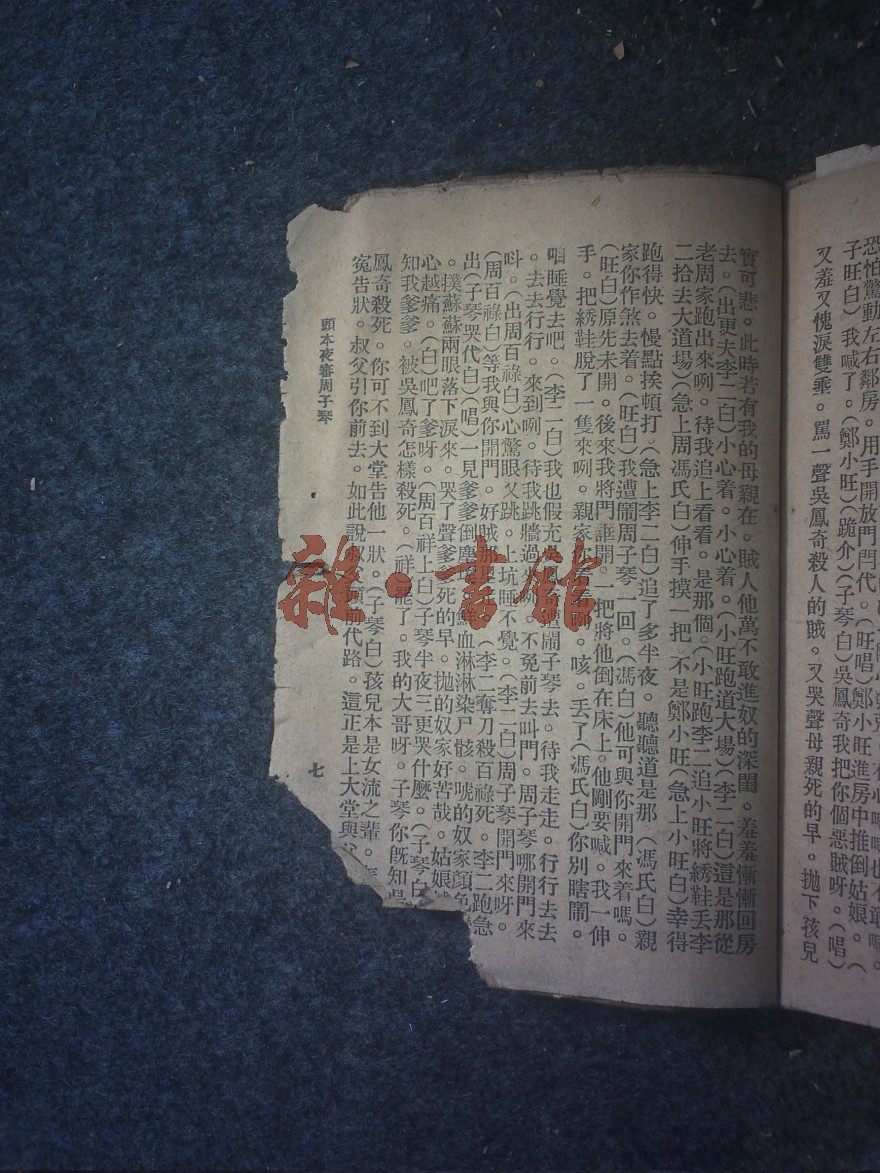 恐怕驚動左右鄰房。用手開放門閂代。(旺唱)鄭小旺進房中推倒姑娘。(
子旺白)我喊了。(鄭小旺)(跪介)(子琴白)吳鳳奇我把你個惡賊呀。(唱)
又羞又愧淚雙垂。罵一聲吳鳳奇殺人的賊。又哭聲母親死的早。拋下孩兒
實可悲。此時若有我的母親在。賊人他萬不敢進奴的深閨。羞羞慚慚回房
去。(出更夫李二白)小心着。小心着。(小旺跑道大場)(李二白)這是那從
老周家跑出來咧。待我追上看看。是那個。(小旺跑李二追小旺將綉鞋丢李
二拾去大道場)(急上周馮氏白)伸手摸一把 不是鄭小旺(急上小旺白)幸得
跑得快。慢點挨頓打。(急上李二白)追了多半夜。聽聽道是那 (馮氏白)親
家你作煞去着。(旺白)我遭鬧周子琴一回。(馮白)他可與你開門來着嗎。
(旺白)原先未開。後來我將門誆開。一把將他倒在床上。他剛要喊。我一伸
手。把綉鞋脫了一隻來咧。親家你看看咧。咳。丢了(馮氏白)你別瞎鬧。
咱睡覺去吧。(李二白)我也假充吳鳳奇遭鬧子琴去。待我走走。行行去去
。去去行行。來到咧。待我跳牆過去咧。不免前去叫門。周子琴哪開門來
呌。(出周百祿白)心驚眼又跳。上坑睡不覺。(李二白)周子琴開門來呀。
(周百祿白)等我與你開門。好賊那里走。(李二奪刀殺百祿死。李二跑急
出(子琴哭代白)(唱)一見爹爹倒塵埃。鮮血淋淋染尸骸。唬的奴家顏色
。撲蘇蘇兩眼落下淚來。哭了聲爹爹死的早。拋的奴家好苦哉。姑娘
心越痛。(白)吧了爹呀。(周百祥上白)子琴半夜三更哭什麽。(子琴白
知我爹爹。被吳鳳奇怎樣殺死。(祥 罷了。我的大哥呀。子琴你既知是
鳳奇殺死。你可不到大堂告他一狀。(子琴白)孩兒本是女流之輩。
寃告狀。叔父引你前去。如此說叔父頭前代路。這正是上大堂與
頭本夜審周子琴
七
雜·書館